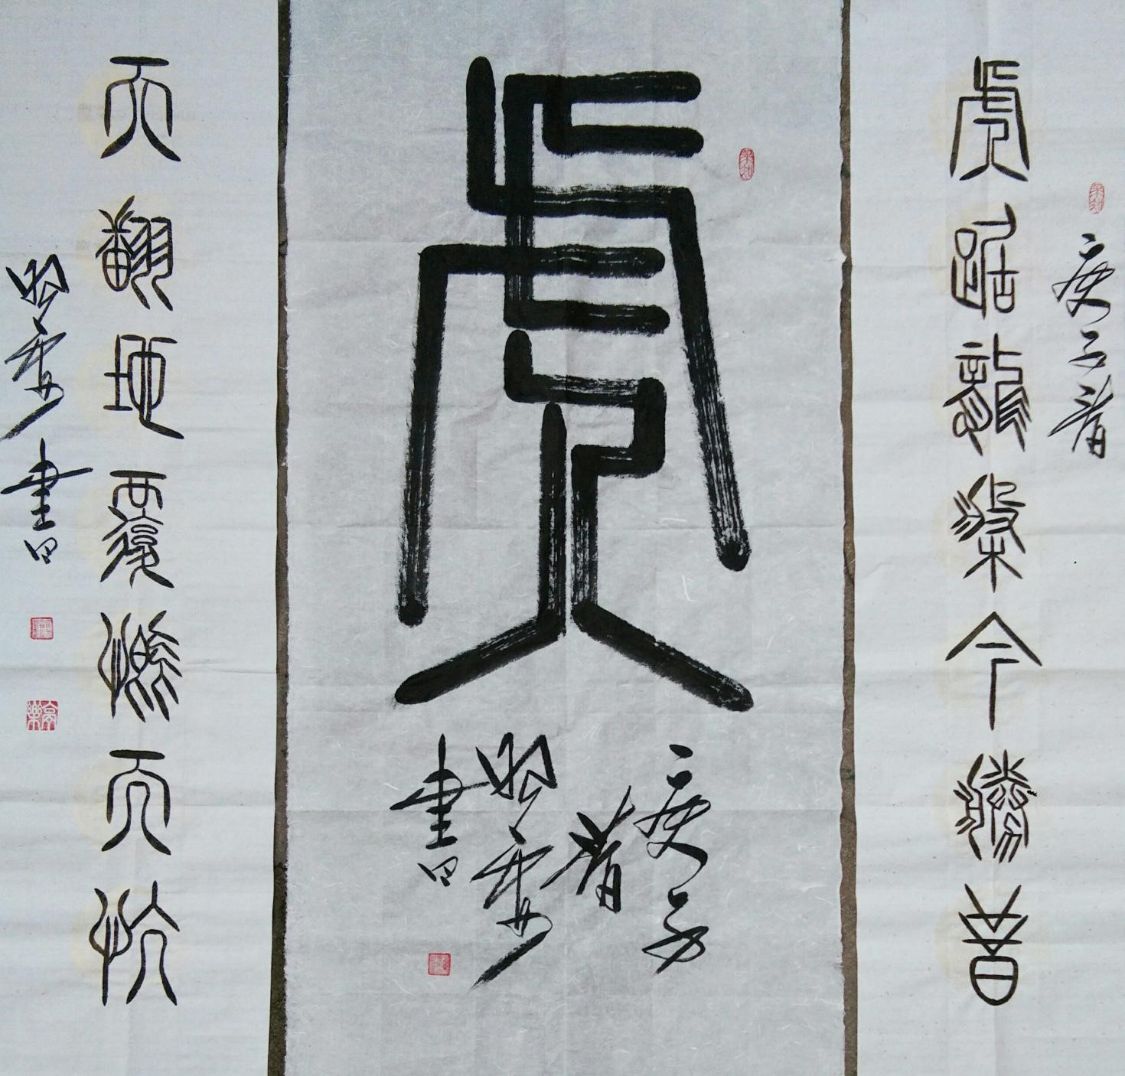 虎踞龍盤今勝昔
庚子春
虎
庚子
春
書
天翻地覆慨而慷
書